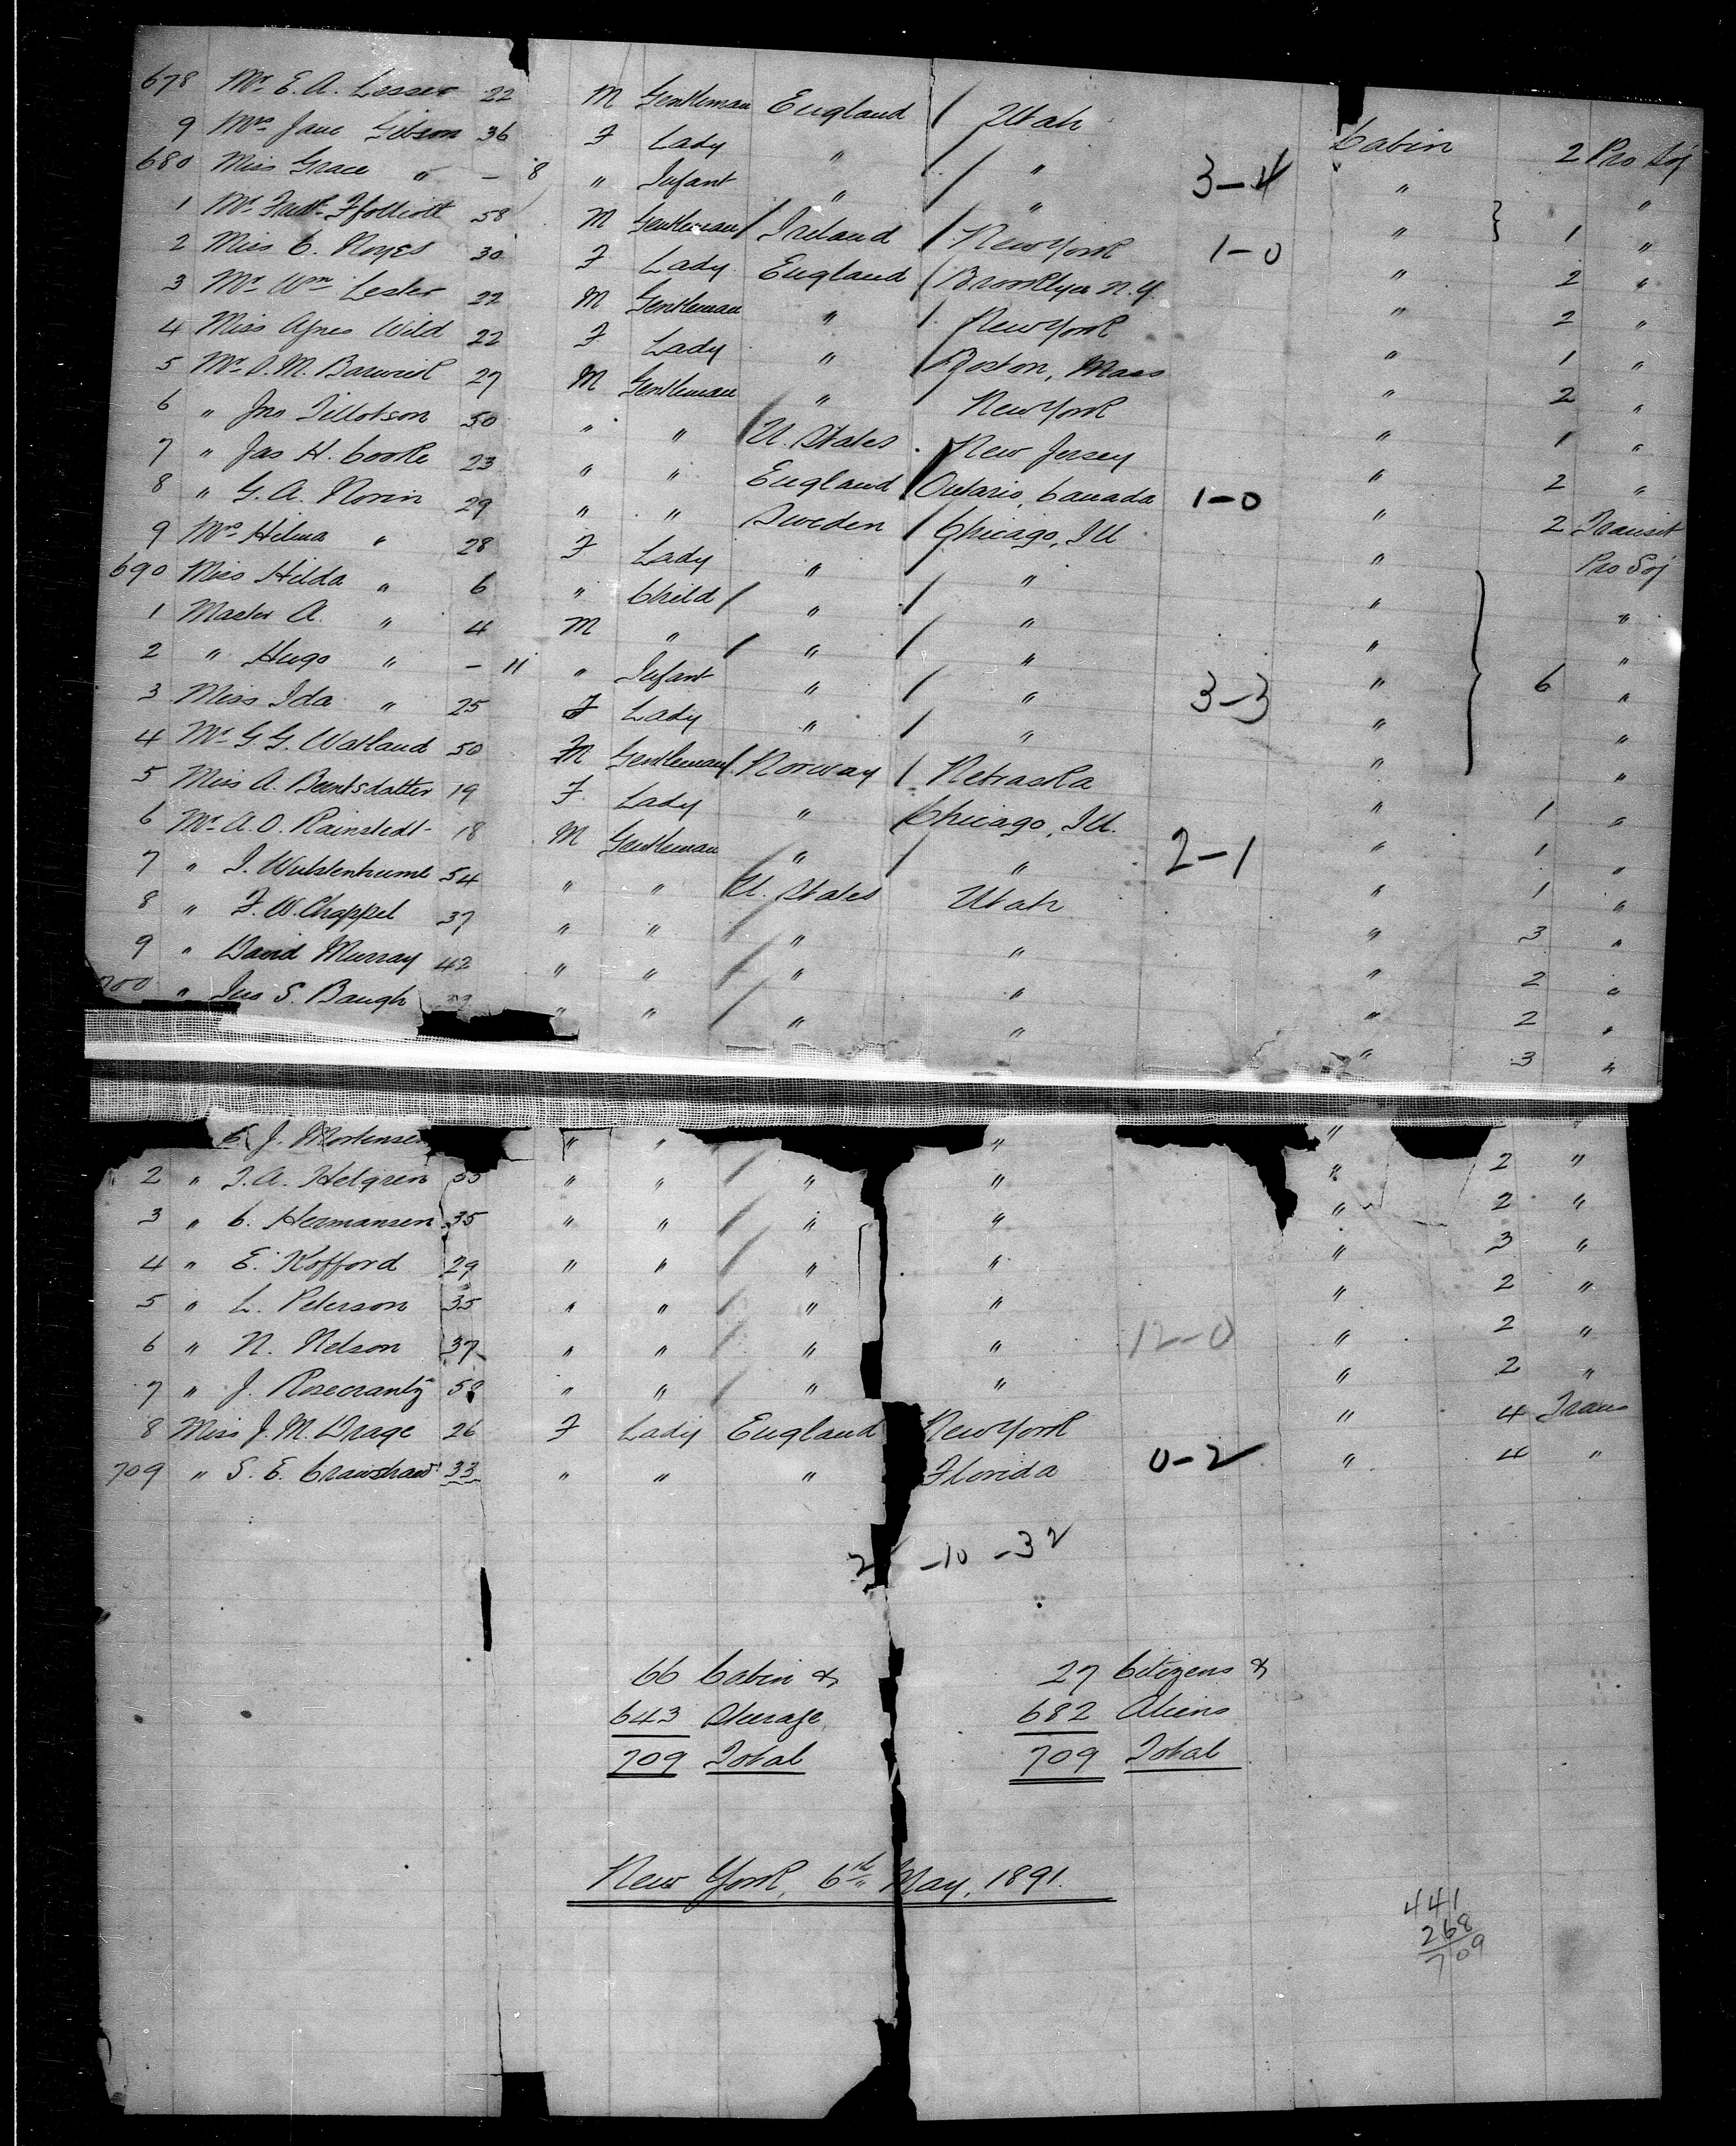 678 Mr. E. A. Lesser 22 M Gentleman England / Utah Cabin 2 Pro Soj
9 Mrs. Jane Gibson 36 F Lady " / " " "
680 Miss Grace " – 8 " Infant " / " 3–4 " } 1 "
1 Mr. 58 M Gentleman / Ireland / New York 1–0 " 2 "
2 Miss C. Noyes 30 F Lady England / Brooklyn N.Y. " 2 "
3 Mr. Wm. Lester 22 M Gentleman " / New York " 1 "
4 Miss Agnes Wild 22 F Lady " / Boston, Mass " 2 "
5 Mr. 27 M Gentleman " New York " 1 "
6 " Jno Tillotson 50 " " / U. States New Jersey " 2 "
7 " Jas H. Cooke 23 " " England / Ontario, Canada 1–0 " 2 Transit
8 " G. A. Norin 29 " " Sweden / Chicago, Ill " Pro Soj
9 Mrs. Hilma " 28 F Lady " / " " "
690 Miss Hilda " 6 " Child / " / " " "
1 Master A. " 4 M " / " / " " 6 "
2 " Hugo " – 11 " Infant " / " 3–3 " "
3 Miss Ida " 25 F Lady " / " " "
4 Mr. G. G. Watland 50 M Gentleman / Norway / Nebraska " 1 "
5 Miss A. Berntsdatter 19 F Lady " / Chicago, Ill. " 1 "
6 Mr. A. O. Rainstedt 18 M Gentleman " / " 2–1 " 1 "
7 " 54 " " U. States Utah " 3 "
8 " F. W. Chappel 37 " " / " " " 2 "
9 " David Murray 42 " " / " " " 2 "
700 " Jno S. Baugh " " / " " " 3 "
C. J. Mortensen " " / " " 2 "
2 " T. A. Helgren " " / " " " 2 "
3 " C. Hermansen 35 " " / " " " 3 "
4 " E. Kofford 29 " " / " " " 2 "
5 " L. Peterson 35 " " / " " " 2 "
6 " N. Nelson 37 " " / " " 12–0 " 2 "
7 " J. Rosecrantz " " / " " " 4 Trans
8 Miss J. M. Drage 26 F Lady England New York " 4 "
709 " S. E. Crawshaw 33 " " " Florida 0–2 "
–10 –3
66 Cabin & 27 Citizens &
643 Steerage 682 Aliens
709 Total 709 Total
New York, 6th May, 1891.
441
268
709